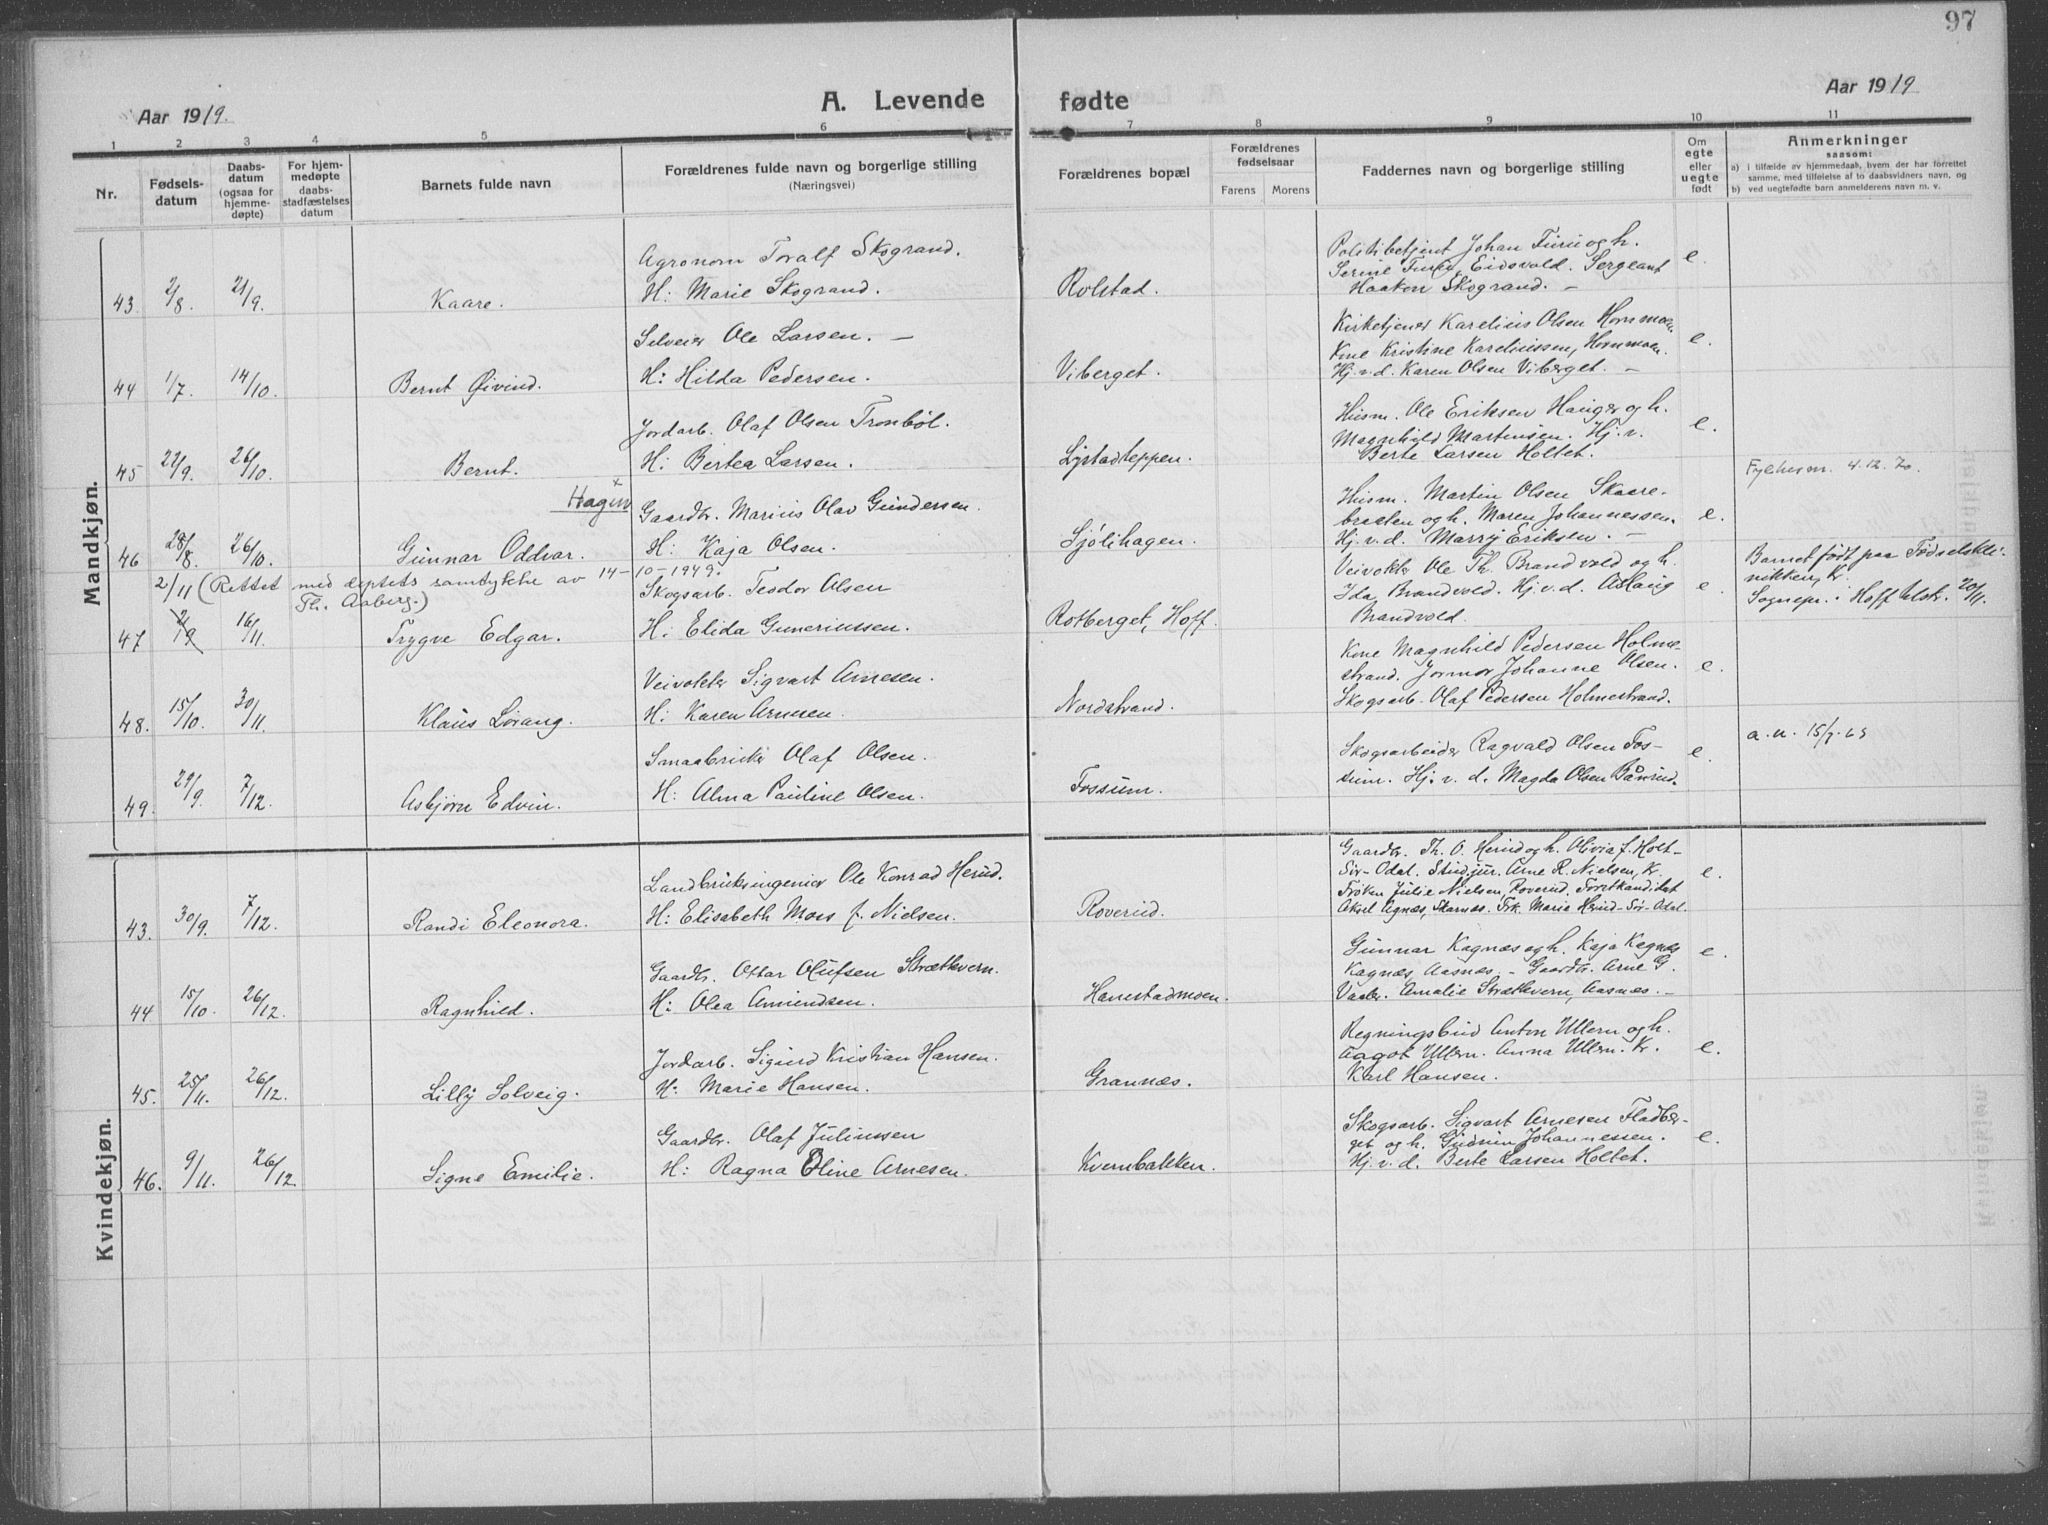 97
Aar 1919.
A. Levende fødte
Aar 1919
1 2 3 4 5 6 7 8 9 10 11
Nr.
Fødsels-
datum
Daabs-
datum
(ogsaa for
hjemme-
døpte)
For hjem-
medøpte
daabs-
stadfæstelses
datum
Barnets fulde navn
Forældrenes fulde navn og borgerlige stilling
(Næringsvei)
Forældrenes bopæl
Forældrenes
fødselsaar
Farens Morens
Faddernes navn og borgerlige stilling
Om
egte
eller
uegte
født
Anmerkninger
saasom:
a) i tilfælde av hjemmedaab, hvem der har forrettet
samme, med tilføielse af to daabsvidners navn, og
b) ved uegtefødte barn anmelderens navn m. v.
Mandkjøn.
43 2/8. 21/9. Kaare.
Agronom Toralf Skogrand.
H: Marie Skogrand.
Rolstad.
Politibetjent Johan Furu og h.
Serine Furu, Eidsvold. Sergeant
Haakon Skogrand. —
e.
44 1/7. 14/10. Bernt Øivind.
Selveier Ole Larsen. —
H: Hilda Pedersen.
Viberget.
Kirketjener Karelius Olsen Hornmoen.
Kone Kristine Kareliussen, Hornmoen.
Hj.v.d. Karen Olsen Viberget. —
e.
45 22/9. 26/10. Bernt.
Jordarb. Olaf Olsen Tronbøl.
H: Bertea Larsen.
Lystadteppen.
Husm. Ole Eriksen Hauger og h.
Magnhild Martinsen. Hj. v.
Berte Larsen Holtet.
e.
46 28/8. 26/10. Gunnar Oddvar.
Hagen x
Gaardbr. Marius Olav Gundersen.
H: Kaja Olsen.
Sjølihagen.
Husm. Martin Olsen Skaare-
braaten og h. Maren Johannessen.
Hj.v.d. Marry Eriksen. —
e.
Fylkesm. 4.12.70
2/11 (Rettet med deptets samtykke av 14-10-1949.
Fl. Aaberg.)
47 2/12 16/11 Trygve Edgar.
Skogsarb. Teodor Olsen
H: Elida Guneriussen.
Rotberget, Hoff.
Veivokter Ole Th. Brandvold og h.
Ida Brandvold. Hj.v.d. Aslaug
Brandvold.
e
Barnet født paa Fødselskli-
nikken, Kr.
Sognepr. i Hoff Attstr. 20/11.
48. 15/10. 30/11. Klaus Lorang.
Veivokter Sigvart Arnesen.
H: Karen Arnesen.
Nordstrand.
Kone Magnhild Pedersen Holme-
strand. Jormor Johanne Olsen.
Skogsarb. Olaf Pedersen Holmestrand.
e.
49. 29/9. 7/12. Asbjørn Edvin.
Smaabruker Olaf Olsen.
H: Alma Pauline Olsen.
Fossum.
Skogsarbeider Ragvald Olsen Fos-
sum. Hj. v. d. Magda Olsen Bånrud.
e.
a. u. 15/7.63
Kvindekjøn.
43. 30/9. 7/12. Randi Eleonora.
Landbruksingeniør Ole Konrad Herud.
H: Elisabeth Moss f. Nielsen.
Roverud.
Gaardbr. Th. O. Herud og h. Olivia f. Holt-
Sør-Odal. Studjur. Arne R. Nielsen, Kr.
Frøken Julie Nielsen, Roverud. Forstkandidat
Aksel Agnæs, Skarnæs. Frk. Marie Herud-Sør-Odal.
e.
44 15/10. 26/12. Ragnhild.
Gaardbr. Ottar Olufsen Strætkvern.
H: Olea Amundsen.
Hanestadmoen.
Gunnar Kagnæs og h. Kaja Kagnæs
Kagnæs, Aasnæs. — Gaardbr. Arne G.
Vaaler. Amalie Strætkvern, Aasnæs. —
e.
45. 25/11. 26/12. Lilly Solveig.
Jordarb. Sigurd Kristian Hansen.
H: Marie Hansen.
Grannæs.
Regningsbud Anton Ullern og h.
Aagot Ullern. Anna Ullern. Kr.
Karl Hansen.
e.
46. 9/11. 26/12. Signe Emilie.
Gaardbr. Olaf Juliussen
H: Ragna Oline Arnesen.
Kvernbakken.
Skogsarb. Sigvart Arnesen Fladber-
get og h. Gudrun Johannessen.
Hj.v.d. Berte Larsen Holtet.
e.